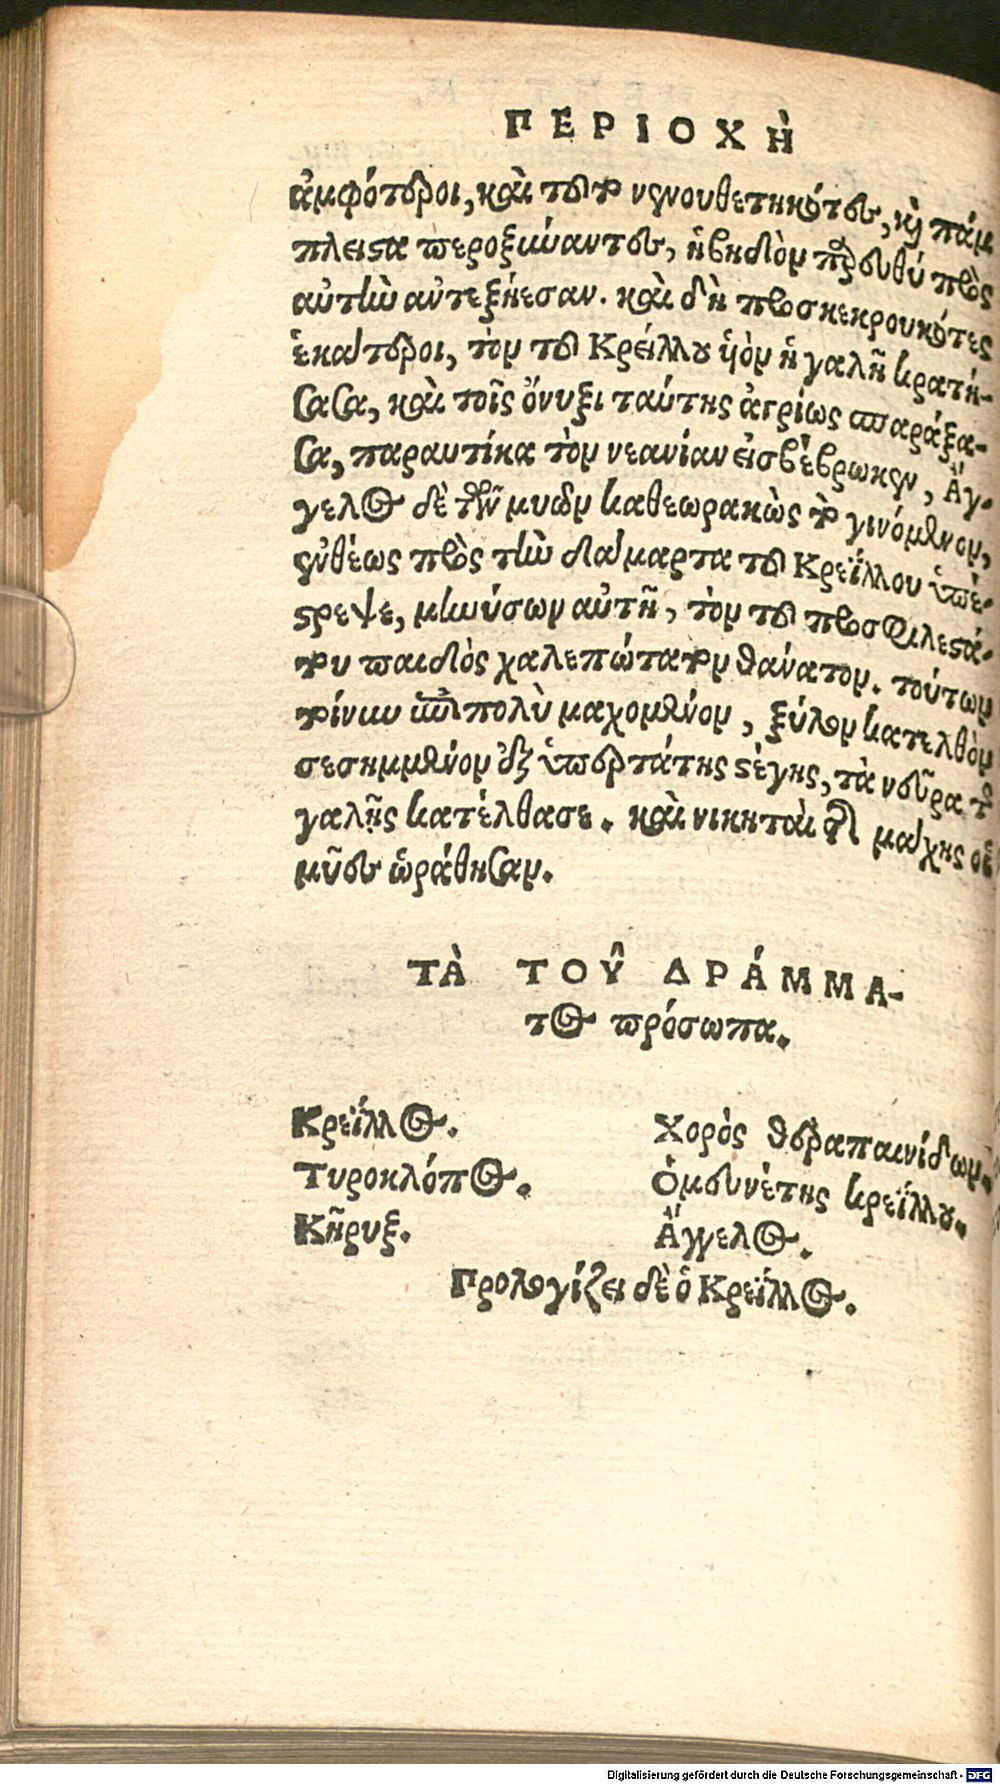 ΠΕΡΙΟΧῊ
ἀμφότεροι, καὶ τοῦτο νενουθετηκότες, καὶ πάμ
πλειστα παροξύναντες, ἡβηδὸν πρὸς
αὐτὴν ἀντεξῄεσαν. καὶ δὴ προσκεκρουκότες
ἑκάτεροι, τὸν τοῦ Κρείλλου ὑὸν ἡ γαλῆ κρατή-
σασα, καὶ τοῖς ὄνυξι ταύτης ἀγρίως σπαράξα-
σα, παραυτίκα τὸν νεανίαν εἰσβέβρωκεν, Ἄγ-
γελος δὲ τῶν μυῶν καθεωρακὼς τὸ γινόμενον,
εὐθέως πρὸς τὴν δάμαρτα τοῦ Κρεΐλλου ὑπέ-
στρεψε, μηνύσων αὐτῇ, τὸν τοῦ προσφιλεστά-
του παιδὸς χαλεπώτατον θάνατον. τούτων
τοίνυν ἐπιπολὺ μαχομένων, ξύλον κατελθὸν
σεσημμένον ἐξ ὑπερτάτης στέγης, τὰ νεῦρα τῆς
γαλῆς κατέλθασε. καὶ νικηταὶ τῆς μάχης οἱ
μῦες ὡράθησαν.
ΤᾺ ΤΟΥ͂ ΔΡΆΜΜΑ-
τος πρόσωπα.
Κρεΐλλος. Χορὸς θεραπαινίδων.
Τυροκλόπος. Ὁμευνέτης κρεΐλλου.
Κῆρυξ. Ἄγγελος.
Προλογίζει δὲ ὁ Κρεΐλλος.
Digitalisierung gefördert durch die Deutsche Forschungsgemeinschaft - DFG